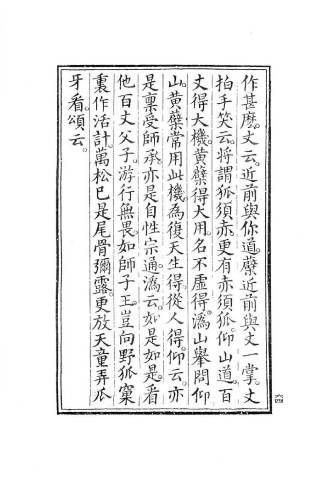 作甚麽。丈云。近前與你道。蘗近前與丈一掌。丈
拍手笑云。將謂狐須赤。更有赤須狐。仰山道。百
丈得大機。黃蘗得大用。名不虛得。溈山舉問仰
山。黃蘗常用此機。為復天生得。從人得。仰云。亦
是稟受師承。亦是自性宗通。溈云。如是如是。看
他百丈父子。游行無畏。如師子王。豈向野狐窠
裏作活計。萬松已是尾骨彌露。更放天童弄爪
牙看。頌云。
六四